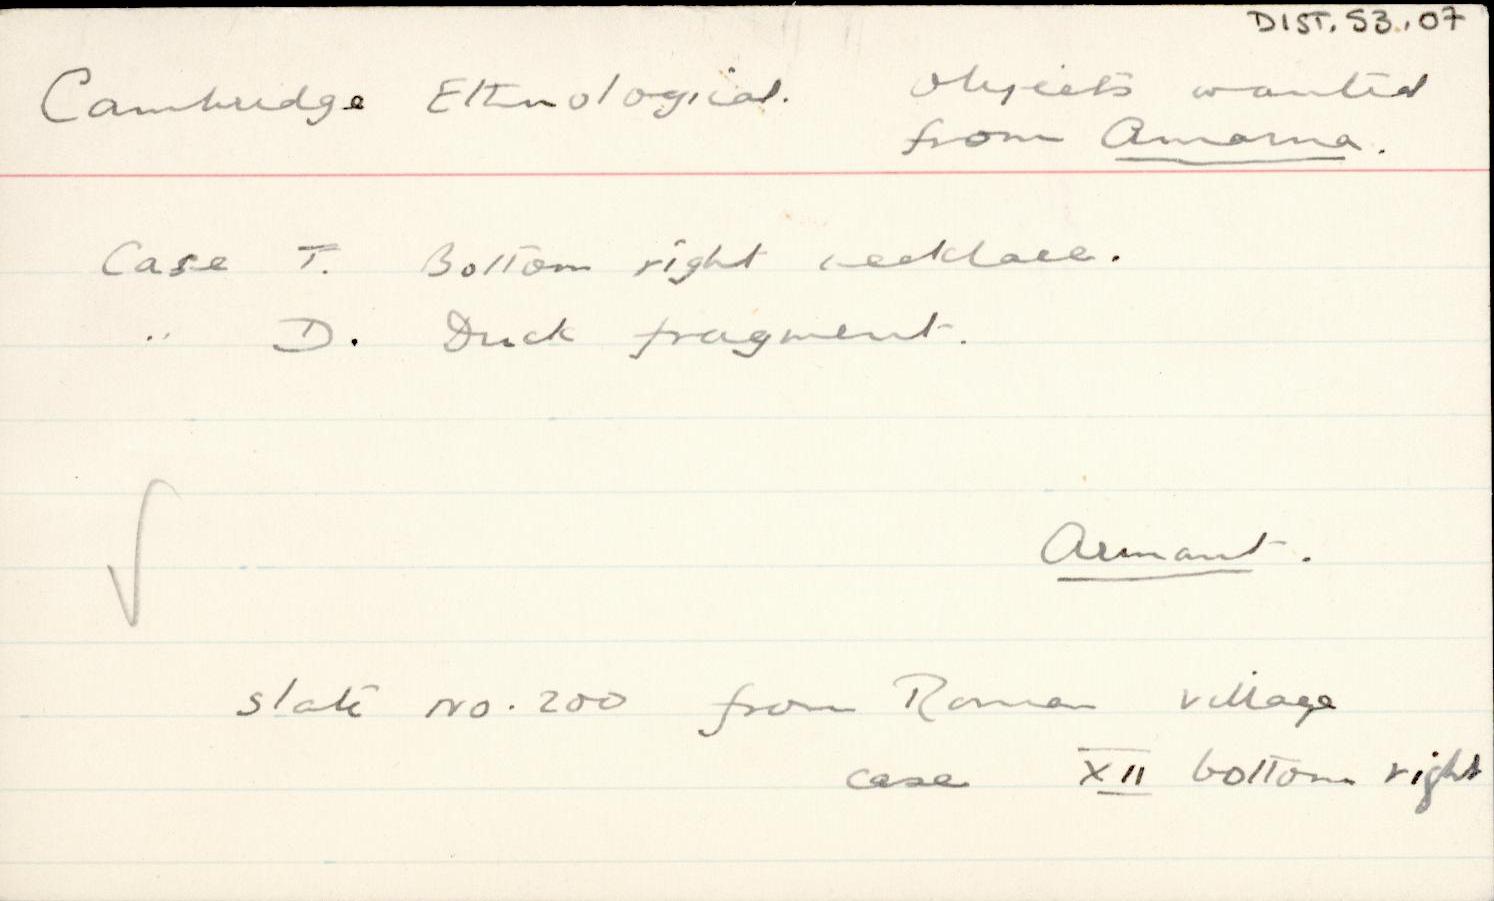 DIST.53.07
Cambridge Ethnological. Objects wanted
from Amarna.
Case T. Bottom right necklace.
" D. Duck fragment.
Armant.
slate No. 200 from Roman village
case XII bottom right